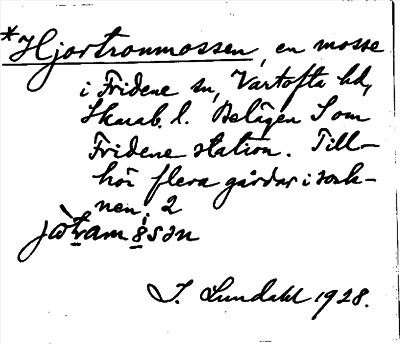 *Hjortronmossen, en mosse
i Fridene sn, Vartofta hd,
Skarab. l. Belägen S om
Fridene station. Till-
hör flera gårdar i sock-
nen.
I. Lundahl 1928.